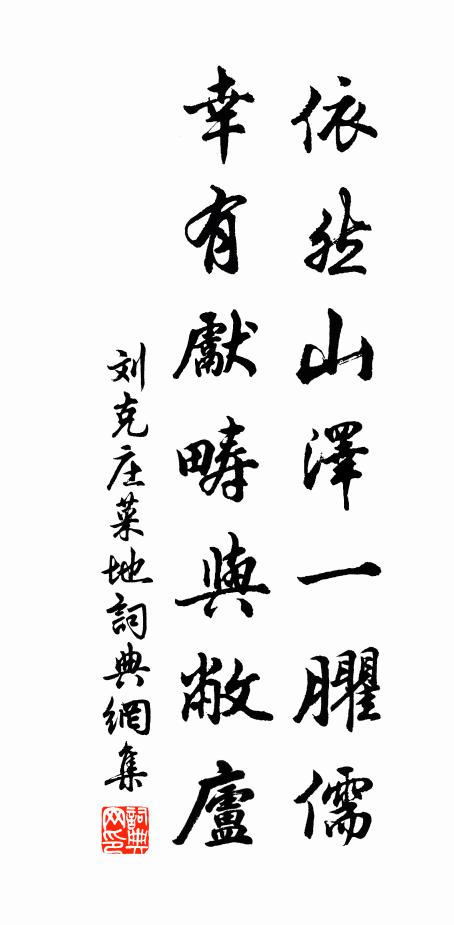 依然山澤一臞儒
幸有獻疇與敝廬
刘克庄菜地詞典網集
詞典
网印